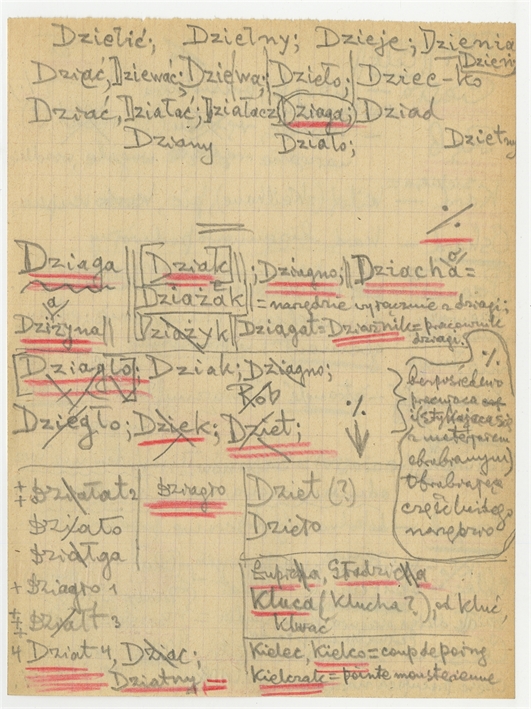 Dzielić; Dzielny; Dzieje; Dzienia
Dzień;
Dziąć, Dziewać; Dziewa; Dzieło; Dziec-ko
Dziać, Działać; Działacz Dziaga; Dziad
Dziany Działo; Dzietny
%
Dziaga Dziak; Dziagno; Dziacha=
Dziażak = narzędzie wyłącznie z dziagi;
Dziżyna Dziażyk Dziagał=Dziażnik=pracownik
a
dziagi;
Dziagło; Dziak; Dziagno;
Rob
Dziegło; Dziek; Dziet; %
% bezpośrednio
pracująca część
(stykająca się
z materjałem
obrabianym)
obrabiająca
część każdego
narzędzia
Działał 2 Dziagło Dziet (?)
Działo Dzieło
Działga
+ Dziagło 1
Dziatł 3
4 Dział 4, Dziac;
Dziatny
Łupiała, Gładzicha
Kluca (Klucha?), od kluć,
kłuwać
Kielec, Kielco=coup de poing
Kielczak=pointe moustérienne